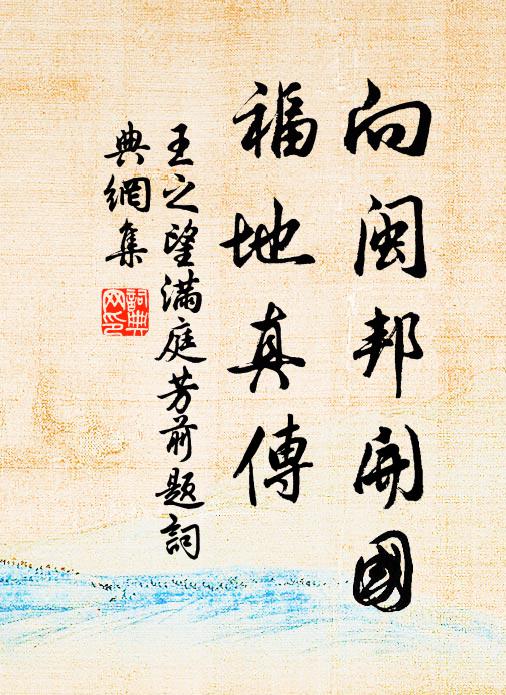 向閩邦開國
福地真傳
王之望滿庭芳前題詞
典網集
詞典
网印